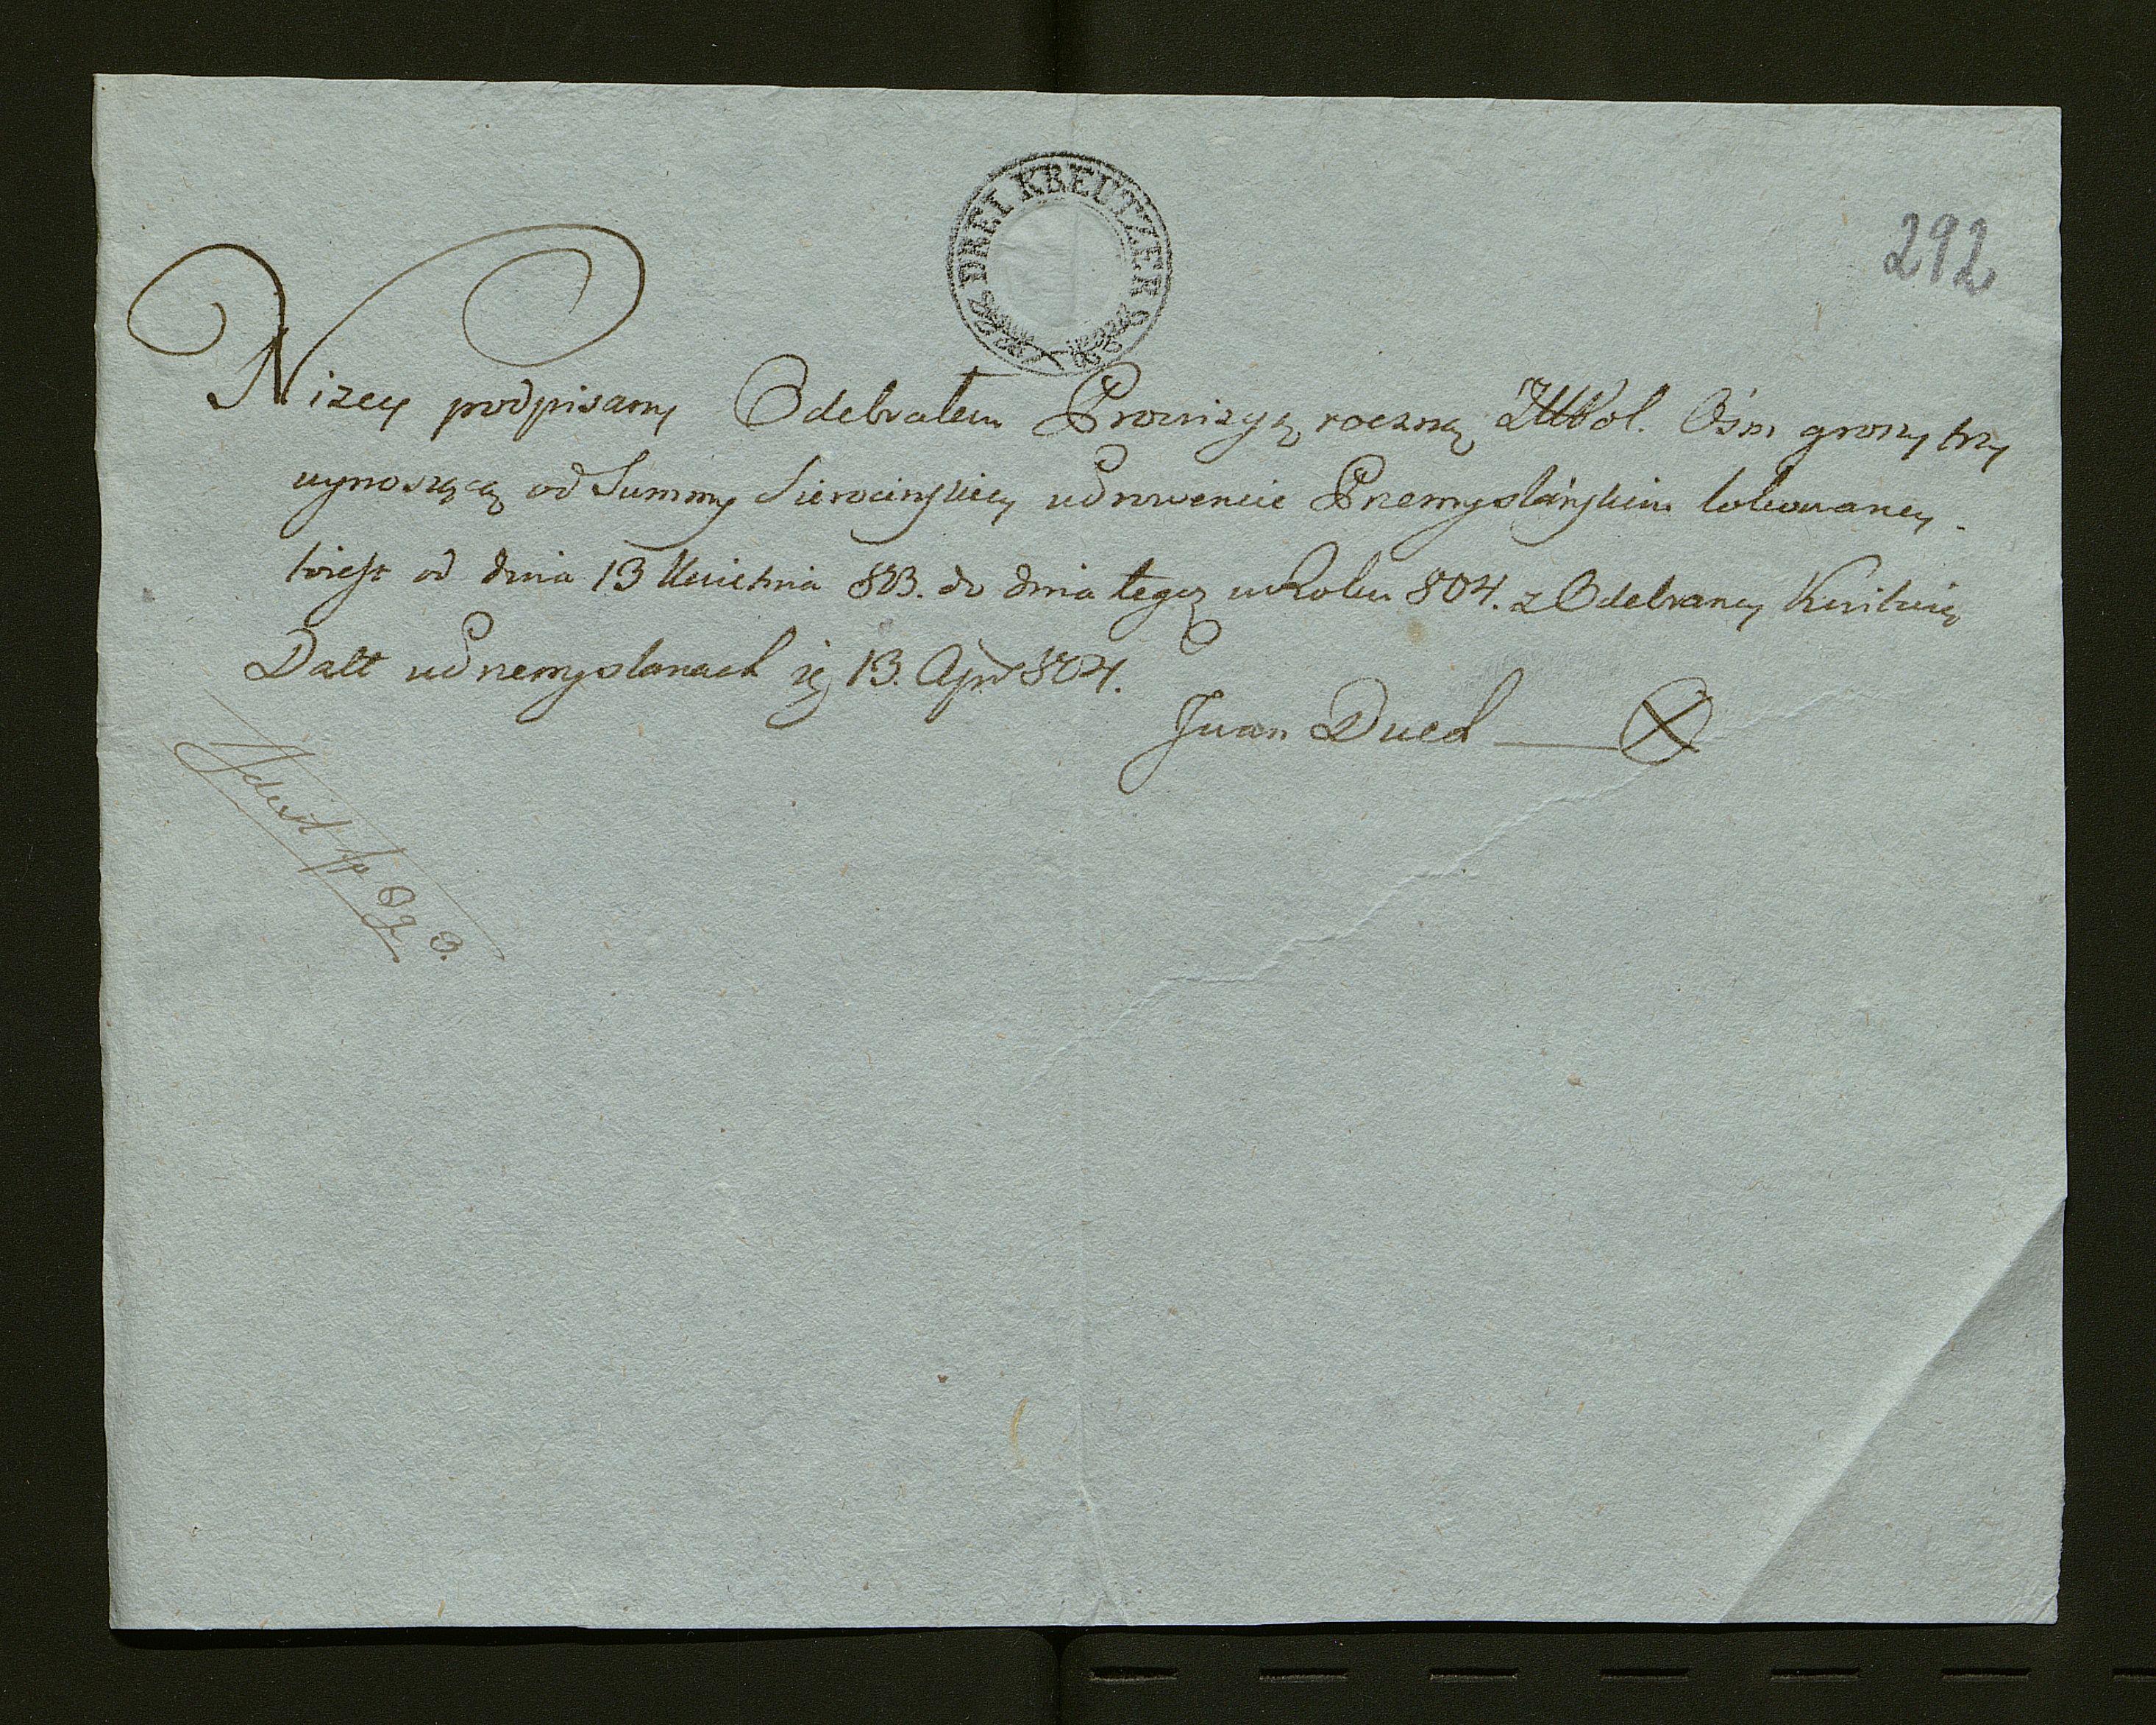 DREI KREUTZER
292
Nizey podpisany Odebrałem Prowizyą roczną Zł Pol. Ośm groszy trzy
wynoszącą od Summy Sierocinskiey w Prowencie Przemyslańskim lokowaney
toiest od dnia 13 Kwietnia 803. do dnia tegoż w Roku 804. z Odebraney Kwituię
Datt w Przemyslanach ię 13. Apr 804.
Iwan Duch
8 g 3.